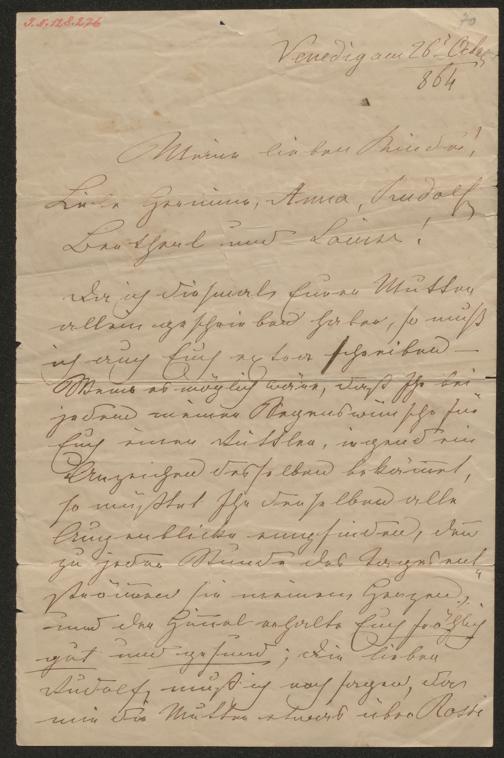 I.N. 128.276
70
Venedig am 26t Octbr
864
Meine lieben Kinder!
Liebe Hermine, Anna, Rudolf
Berthold und Louise!
Da ich diesmals Eurer Mutter
allein geschrieben habe, so muß
ich auch Euch extra schreiben –
Wenn es möglich wäre, daß Ihr bei
jedem meiner Segenswünsche für
Euch einen, irgend ein
Anzeichen desselben bekämet,
so müßtet Ihr denselben alle
Augenblicke empfinden, denn
zu jeder Stunde des Tages ent-
strömen sie meinem Herzen,
und der Himel erhalte Euch fröhlich
gut und gesund; Dir lieber
Rudolf, muß ich noch sagen, das
mir die Mutter etwas über Rossi